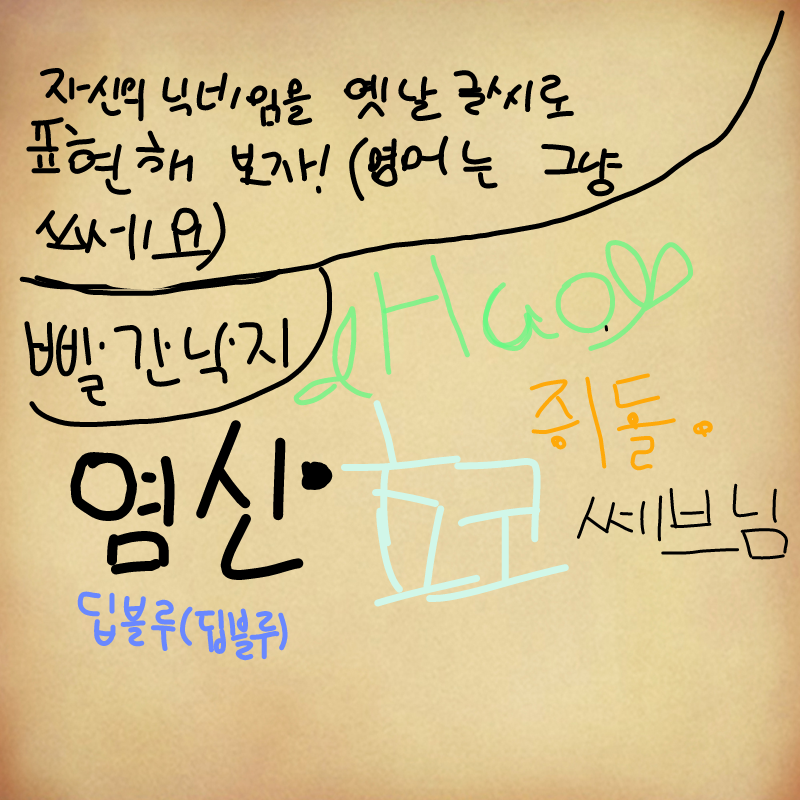 자신의 닉네임을 옛날 글씨로
표현해 보자! (영어는 그냥
쓰세요)
빨간낙지
Hao
쥐돌.
염신
쎄브님
딥블루(딥블루)